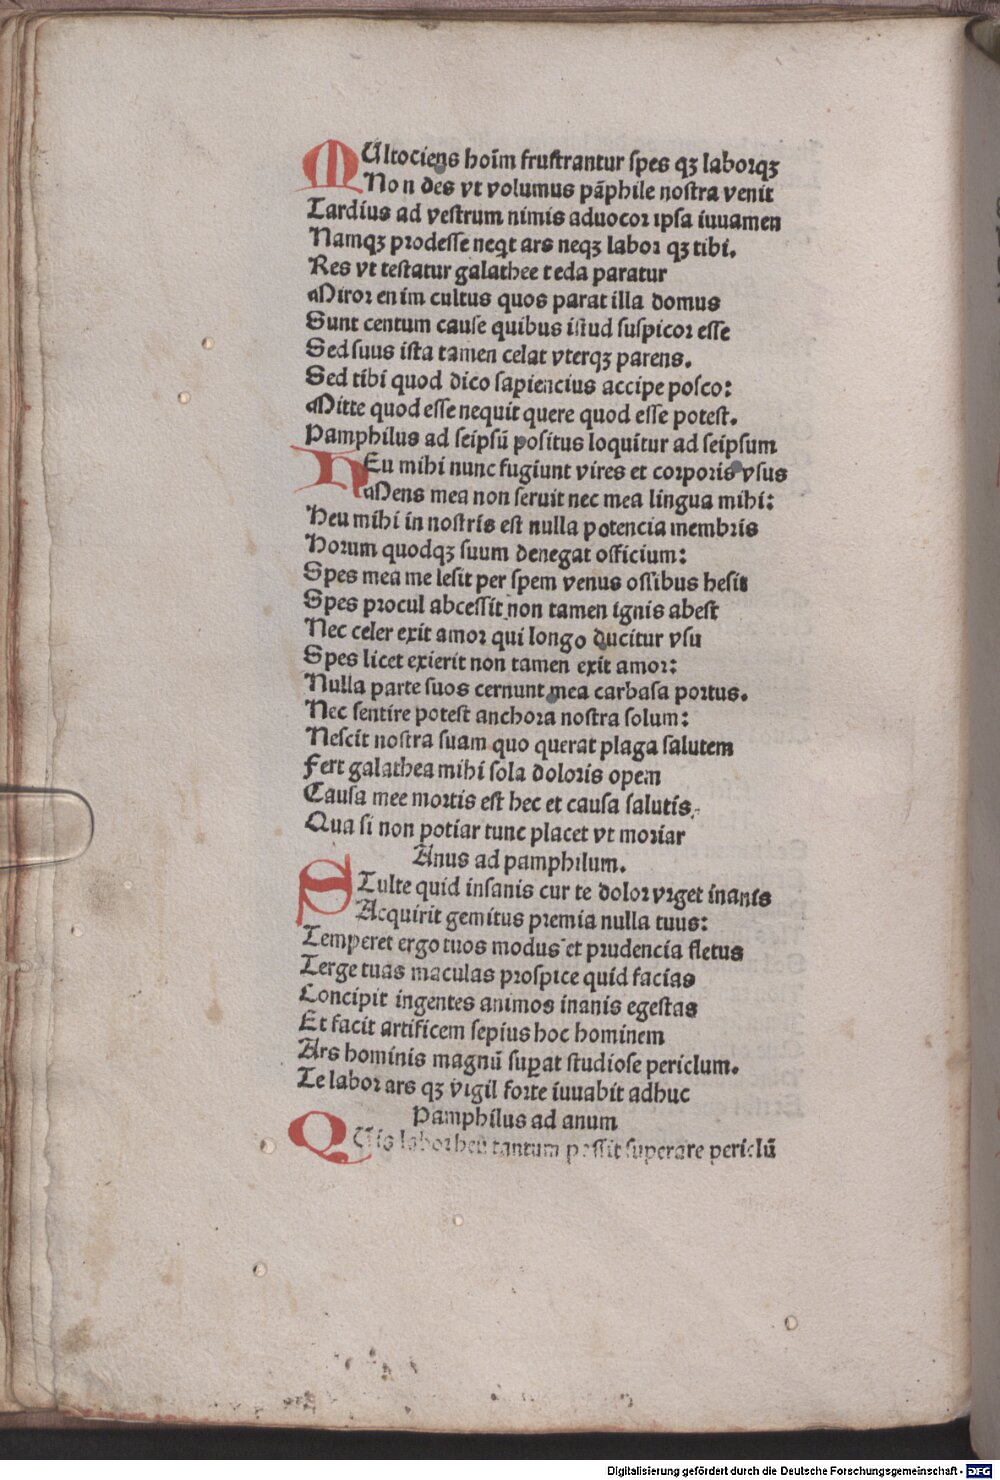 MUltociens hoīm frustrantur spes qꝫ laborqꝫ
Non des vt volumus pāphile nostra venit
Tardius ad vestrum nimis aduocor ipsa iuuamen
Namqꝫ prodesse neqt ars neqꝫ labor qꝫ tibi.
Res vt testatur galathee teda paratur
Miror enim cultus quos parat illa domus
Sunt centum cause quibus istud suspicor esse
Sed suus ista tamen celat vterqꝫ parens.
Sed tibi quod dico sapiencius accipe posco:
Mitte quod esse nequit quere quod esse potest.
Pamphilus ad seipsū positus loquitur ad seipsum
HEu mihi nunc fugiunt vires et corporis vsus
Mens mea non seruit nec mea lingua mihi:
Heu mihi in nostris est nulla potencia membris
Horum quodqꝫ suum denegat officium:
Spes mea me lesit per spem venus ossibus hesit
Spes procul abcessit non tamen ignis abest
Nec celer exit amor qui longo ducitur vsu
Spes licet exierit non tamen exit amor:
Nulla parte suos cernunt mea carbasa portus.
Nec sentire potest anchora nostra solum:
Nescit nostra suam quo querat plaga salutem
Fert galathea mihi sola doloris opem
Causa mee mortis est hec et causa salutis.
Qua si non potiar tunc placet vt moriar
Anus ad pamphilum.
STulte quid insanis cur te dolor vrget inanis
Acquirit gemitus premia nulla tuus:
Temperet ergo tuos modus et prudencia fletus
Terge tuas maculas prospice quid facias
Concipit ingentes animos inanis egestas
Et facit artificem sepius hoc hominem
Ars hominis magnū suꝑat studiose periclum.
Te labor ars qꝫ vigil forte iuuabit adhuc
Pamphilus ad anum
QUis labor heu tantum possit superare periclū
Digitalisierung gefördert durch die Deutsche Forschungsgemeinschaft - DFG